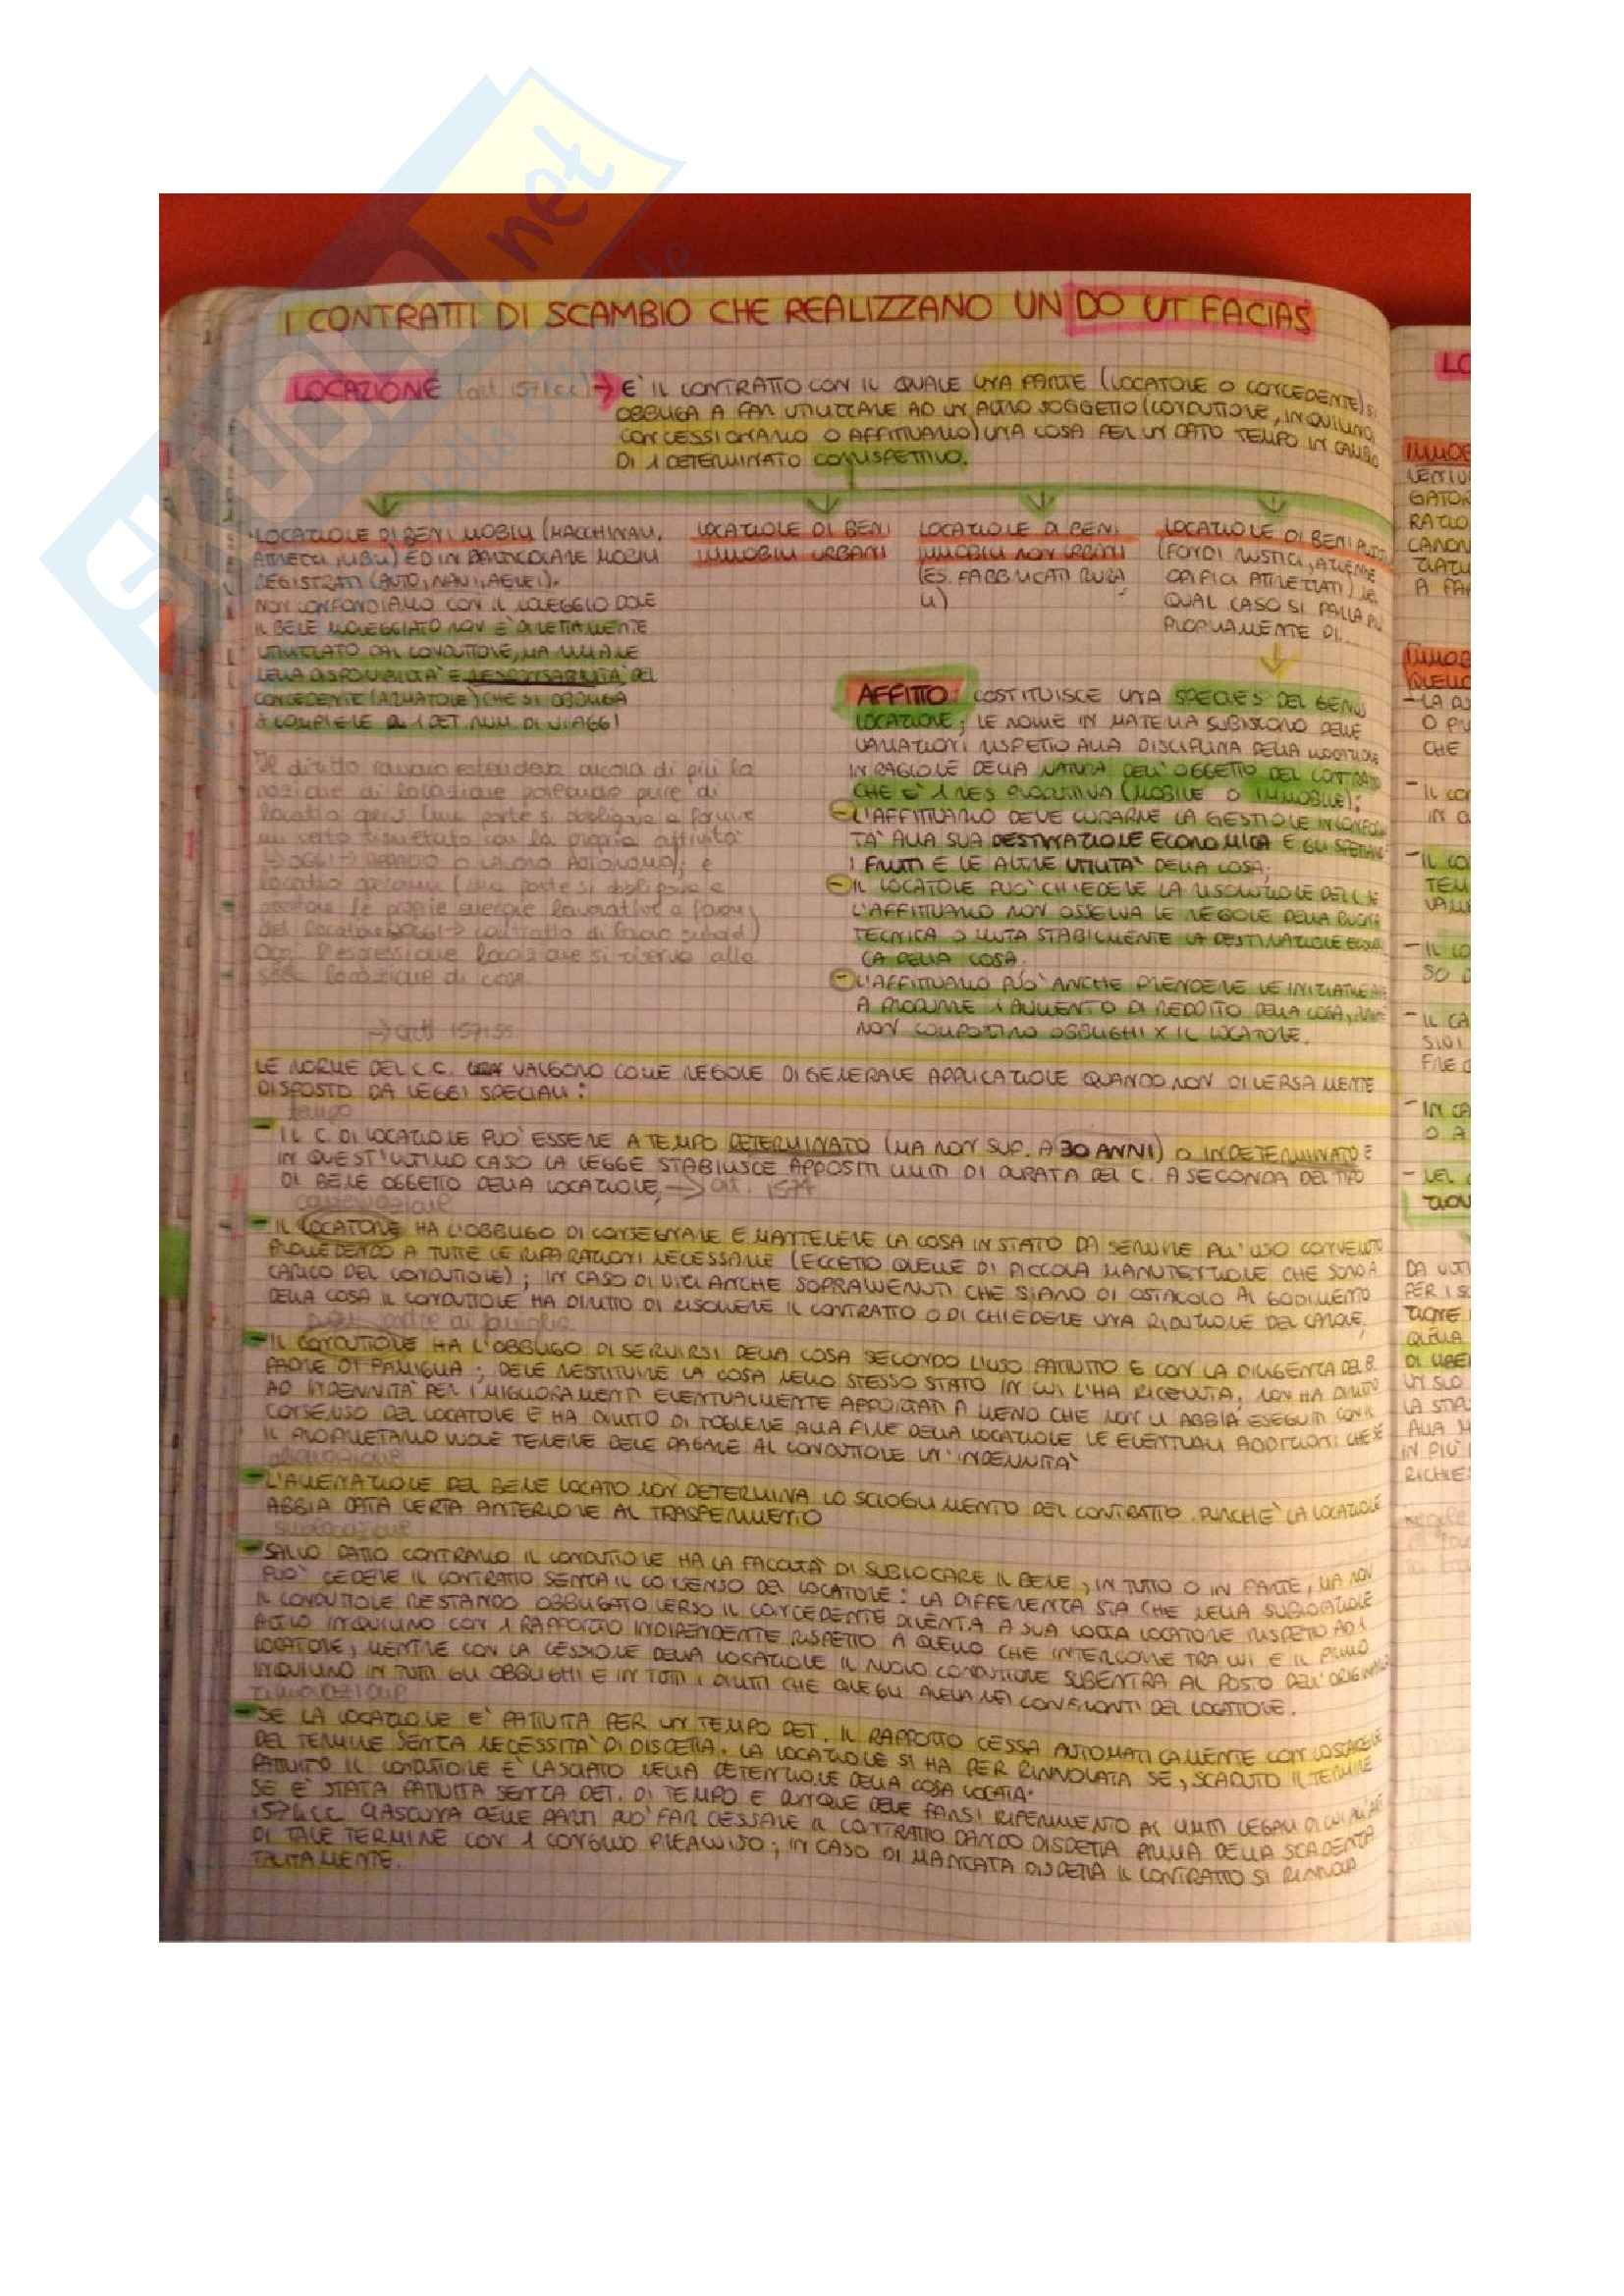 SKUOLA.net
I CONTRATTI DI SCAMBIO CHE REALIZZANO UN DO UT FACIAS
LOCAZIONE (art. 1571 cc) → E' IL CONTRATTO CON IL QUALE UNA PARTE (LOCATORE O CONCEDENTE) SI
OBBLIGA A FAR UTILIZZARE AD UN ALTRO SOGGETTO (CONDUTTORE, INQUILINO,
CONCESSIONARIO O AFFITTUARIO) UNA COSA PER UN DATO TEMPO IN CAMBIO
DI 1 DETERMINATO CORRISPETTIVO.
LOCAZIONE DI BENI MOBILI (MACCHINARI,
ATTREZZI, LIBRI) ED IN PARTICOLARE MOBILI
REGISTRATI (AUTO, NAVI, AEREI).
NON CONFONDIAMO CON IL NOLEGGIO DOVE
IL BENE NOLEGGIATO NON E' DIRETTAMENTE
UTILIZZATO DAL CONDUTTORE, MA RIMANE
NELLA DISPONIBILITA' E RESPONSABILITA' DEL
CONCEDENTE (ARMATORE) CHE SI OBBLIGA
A COMPIERE 1 DET. NUM. DI VIAGGI
LOCAZIONE DI BENI
IMMOBILI URBANI
LOCAZIONE DI BENI
IMMOBILI NON URBANI
(ES. FABBRICATI RURA
LI)
LOCAZIONE DI BENI
(FONDI RUSTICI, AZIENDE
OPIFICI ATTREZZATI) NEL
QUAL CASO SI PARLA PIU'
PROPRIAMENTE DI...
Il diritto romano estendeva ancora di più la
nozione di locazione potendo pure di
locatio operis (una parte si obbliga a fornire
un certo risultato con la propria attività
OGGI → APPALTO O LAVORO AUTONOMO); e
locatio operarum (una parte si obbligava a
prestare le proprie energie lavorative a favore
del locatore OGGI → contratto di lavoro subord)
Oggi l'espressione locazione si riserva alla
sola locazione di cose
AFFITTO: COSTITUISCE UNA SPECIES DEL GENUS
LOCAZIONE; LE NORME IN MATERIA SUBISCONO DELLE
VARIAZIONI RISPETTO ALLA DISCIPLINA DELLA LOCAZIONE
IN RAGIONE DELLA NATURA DELL'OGGETTO DEL CONTRATTO
CHE E' 1 RES PRODUTTIVA (MOBILE O IMMOBILE):
- L'AFFITTUARIO DEVE CURARNE LA GESTIONE IN CONFORMI
TA' ALLA SUA DESTINAZIONE ECONOMICA E GLI SPETTANO
I FRUTTI E LE ALTRE UTILITA' DELLA COSA;
- IL LOCATORE PUO' CHIEDERE LA RISOLUZIONE DEL C. SE
L'AFFITTUARIO NON OSSERVA LE REGOLE DELLA BUONA
TECNICA O MUTA STABILMENTE LA DESTINAZIONE ECONOMI
CA DELLA COSA.
- L'AFFITTUARIO PUO' ANCHE PRENDERE LE INIZIATIVE ATTE
A PRODURRE 1 AUMENTO DI REDDITO DELLA COSA,
NON COMPORTINO OBBLIGHI X IL LOCATORE.
→ artt 1571 ss
LE NORME DEL C.C. VALGONO COME REGOLE DI GENERALE APPLICAZIONE QUANDO NON DIVERSAMENTE
DISPOSTO DA LEGGI SPECIALI:
tempo
- IL C. DI LOCAZIONE PUO' ESSERE A TEMPO DETERMINATO (MA NON SUP. A 30 ANNI) O INDETERMINATO E
IN QUEST'ULTIMO CASO LA LEGGE STABILISCE APPOSITI LIMITI DI DURATA DEL C. A SECONDA DEL TIPO
DI BENE OGGETTO DELLA LOCAZIONE, → art. 1574
conservazione
- IL LOCATORE HA L'OBBLIGO DI CONSEGNARE E MANTENERE LA COSA IN STATO DA SERVIRE ALL'USO CONVENUTO
PROVVEDENDO A TUTTE LE RIPARAZIONI NECESSARIE (ECCETTO QUELLE DI PICCOLA MANUTENZIONE CHE SONO A
CARICO DEL CONDUTTORE); IN CASO DI VIZI ANCHE SOPRAVVENUTI CHE SIANO DI OSTACOLO AL GODIMENTO
DELLA COSA IL CONDUTTORE HA DIRITTO DI RISOLVERE IL CONTRATTO O DI CHIEDERE UNA RIDUZIONE DEL CANONE;
padre di famiglia
- IL CONDUTTORE HA L'OBBLIGO DI SERVIRSI DELLA COSA SECONDO L'USO PATTUITO E CON LA DILIGENZA DEL B.
PADRE DI FAMIGLIA; DEVE RESTITUIRE LA COSA NELLO STESSO STATO IN CUI L'HA RICEVUTA; NON HA DIRITTO
AD INDENNITA' PER I MIGLIORAMENTI EVENTUALMENTE APPORTATI A MENO CHE NON LI ABBIA ESEGUITI CON IL
CONSENSO DEL LOCATORE E HA DIRITTO DI TOGLIERE ALLA FINE DELLA LOCAZIONE LE EVENTUALI ADDIZIONI CHE SE
IL PROPRIETARIO VUOLE TENERE DEVE PAGARE AL CONDUTTORE UN'INDENNITA'
alienazione
- L'ALIENAZIONE DEL BENE LOCATO NON DETERMINA LO SCIOGLIMENTO DEL CONTRATTO, PURCHE' LA LOCAZIONE
ABBIA DATA CERTA ANTERIORE AL TRASFERIMENTO
sublocazione
- SALVO PATTO CONTRARIO IL CONDUTTORE HA LA FACOLTA' DI SUBLOCARE IL BENE, IN TUTTO O IN PARTE, MA NON
PUO' CEDERE IL CONTRATTO SENZA IL CONSENSO DEL LOCATORE: LA DIFFERENZA STA CHE NELLA SUBLOCAZIONE
IL CONDUTTORE RESTANDO OBBLIGATO VERSO IL CONCEDENTE DIVENTA A SUA VOLTA LOCATORE RISPETTO AD 1
ALTRO INQUILINO CON 1 RAPPORTO INDIPENDENTE RISPETTO A QUELLO CHE INTERCORRE TRA LUI E IL PRIMO
LOCATORE, MENTRE CON LA CESSIONE DELLA LOCAZIONE IL NUOVO CONDUTTORE SUBENTRA AL POSTO DELL'ORIGINARIO
INQUILINO IN TUTTI GLI OBBLIGHI E IN TUTTI I DIRITTI CHE QUEGLI AVEVA NEI CONFRONTI DEL LOCATORE.
rinnovazione
- SE LA LOCAZIONE E' PATTUITA PER UN TEMPO DET. IL RAPPORTO CESSA AUTOMATICAMENTE CON LO SCADERE
DEL TERMINE SENZA NECESSITA' DI DISDETTA. LA LOCAZIONE SI HA PER RINNOVATA SE, SCADUTO IL TERMINE
PATTUITO IL CONDUTTORE E' LASCIATO NELLA DETENZIONE DELLA COSA LOCATA.
SE E' STATA PATTUITA SENZA DET. DI TEMPO E DUNQUE DEVE FARSI RIFERIMENTO AI LIMITI LEGALI DI CUI ALL'ART
1574 CC CIASCUNA DELLE PARTI PUO' FAR CESSARE IL CONTRATTO DANDO DISDETTA PRIMA DELLA SCADENZA
DI TALE TERMINE CON 1 CONGRUO PREAVVISO; IN CASO DI MANCATA DISDETTA IL CONTRATTO SI RINNOVA
TACITAMENTE.